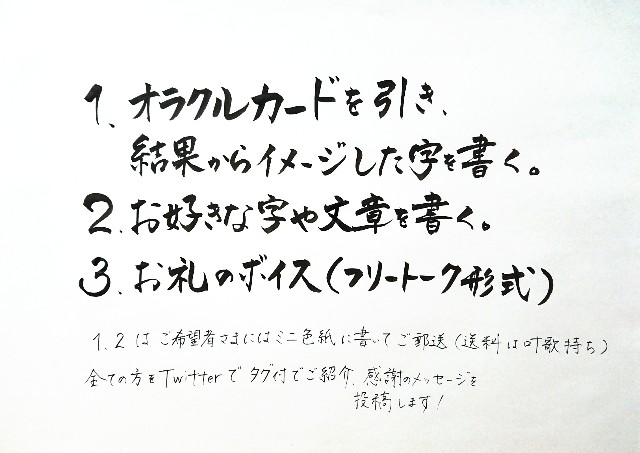 1. オラクルカードを引き、
結果からイメージした字を書く。
2. お好きな字や文章を書く。
3. お礼のボイス(フリートーク形式)
1、2はご希望者さまにはミニ色紙に書いてご郵送(送料は叶歌持ち)
全ての方をTwitterでタグ付でご紹介、感謝のメッセージを
投稿します!